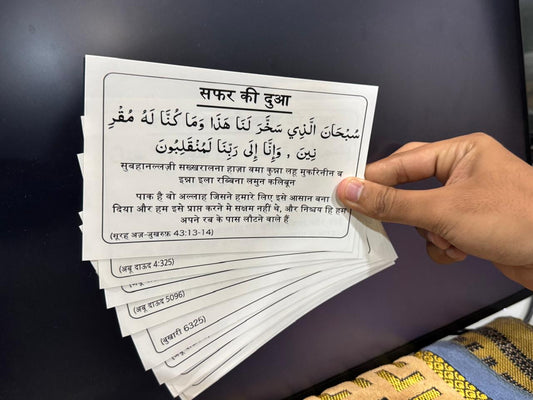 सफर की दुआ
سُبْحَانَ الَّذِي سَخَّرَ لَنَا هَذَا وَمَا كُنَّا لَهُ مُقْرِ
نِينَ , وَإِنَّا إِلَى رَبِّنَا لَمُنْقَلِبُونَ
सुबहानल्लज़ी सख्खरालना हाज़ा वमा कुन्ना लहू मुकरिनीन व
इन्ना इला रब्बिना लमुन कलिबून
पाक है वो अल्लाह जिसने हमारे लिए इसे आसान बना
दिया और हम इसे प्राप्त करने मे सक्षम नहीं थे, और निश्चय हि हम
अपने रब के पास लौटने वाले हैं
(सूरह अज़-ज़ुखरुफ़ 43:13-14)
(अबू दाऊद 4:325)
(अबू दाऊद 5096)
(बुखारी 6325)